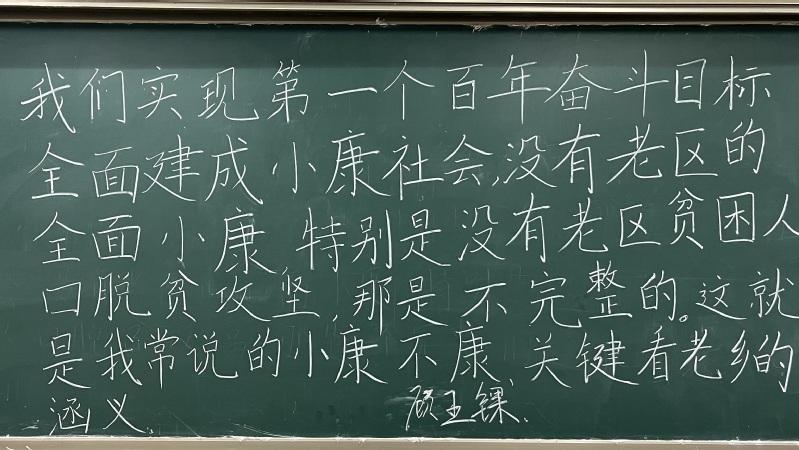 我们实现第一个百年奋斗目标
全面建成小康社会,没有老区的
全面小康,特别是没有老区贫困人
口脱贫攻坚,那是不完整的。这就
是我常说的小康不康,关键看老乡的
涵义.
顾王锞.